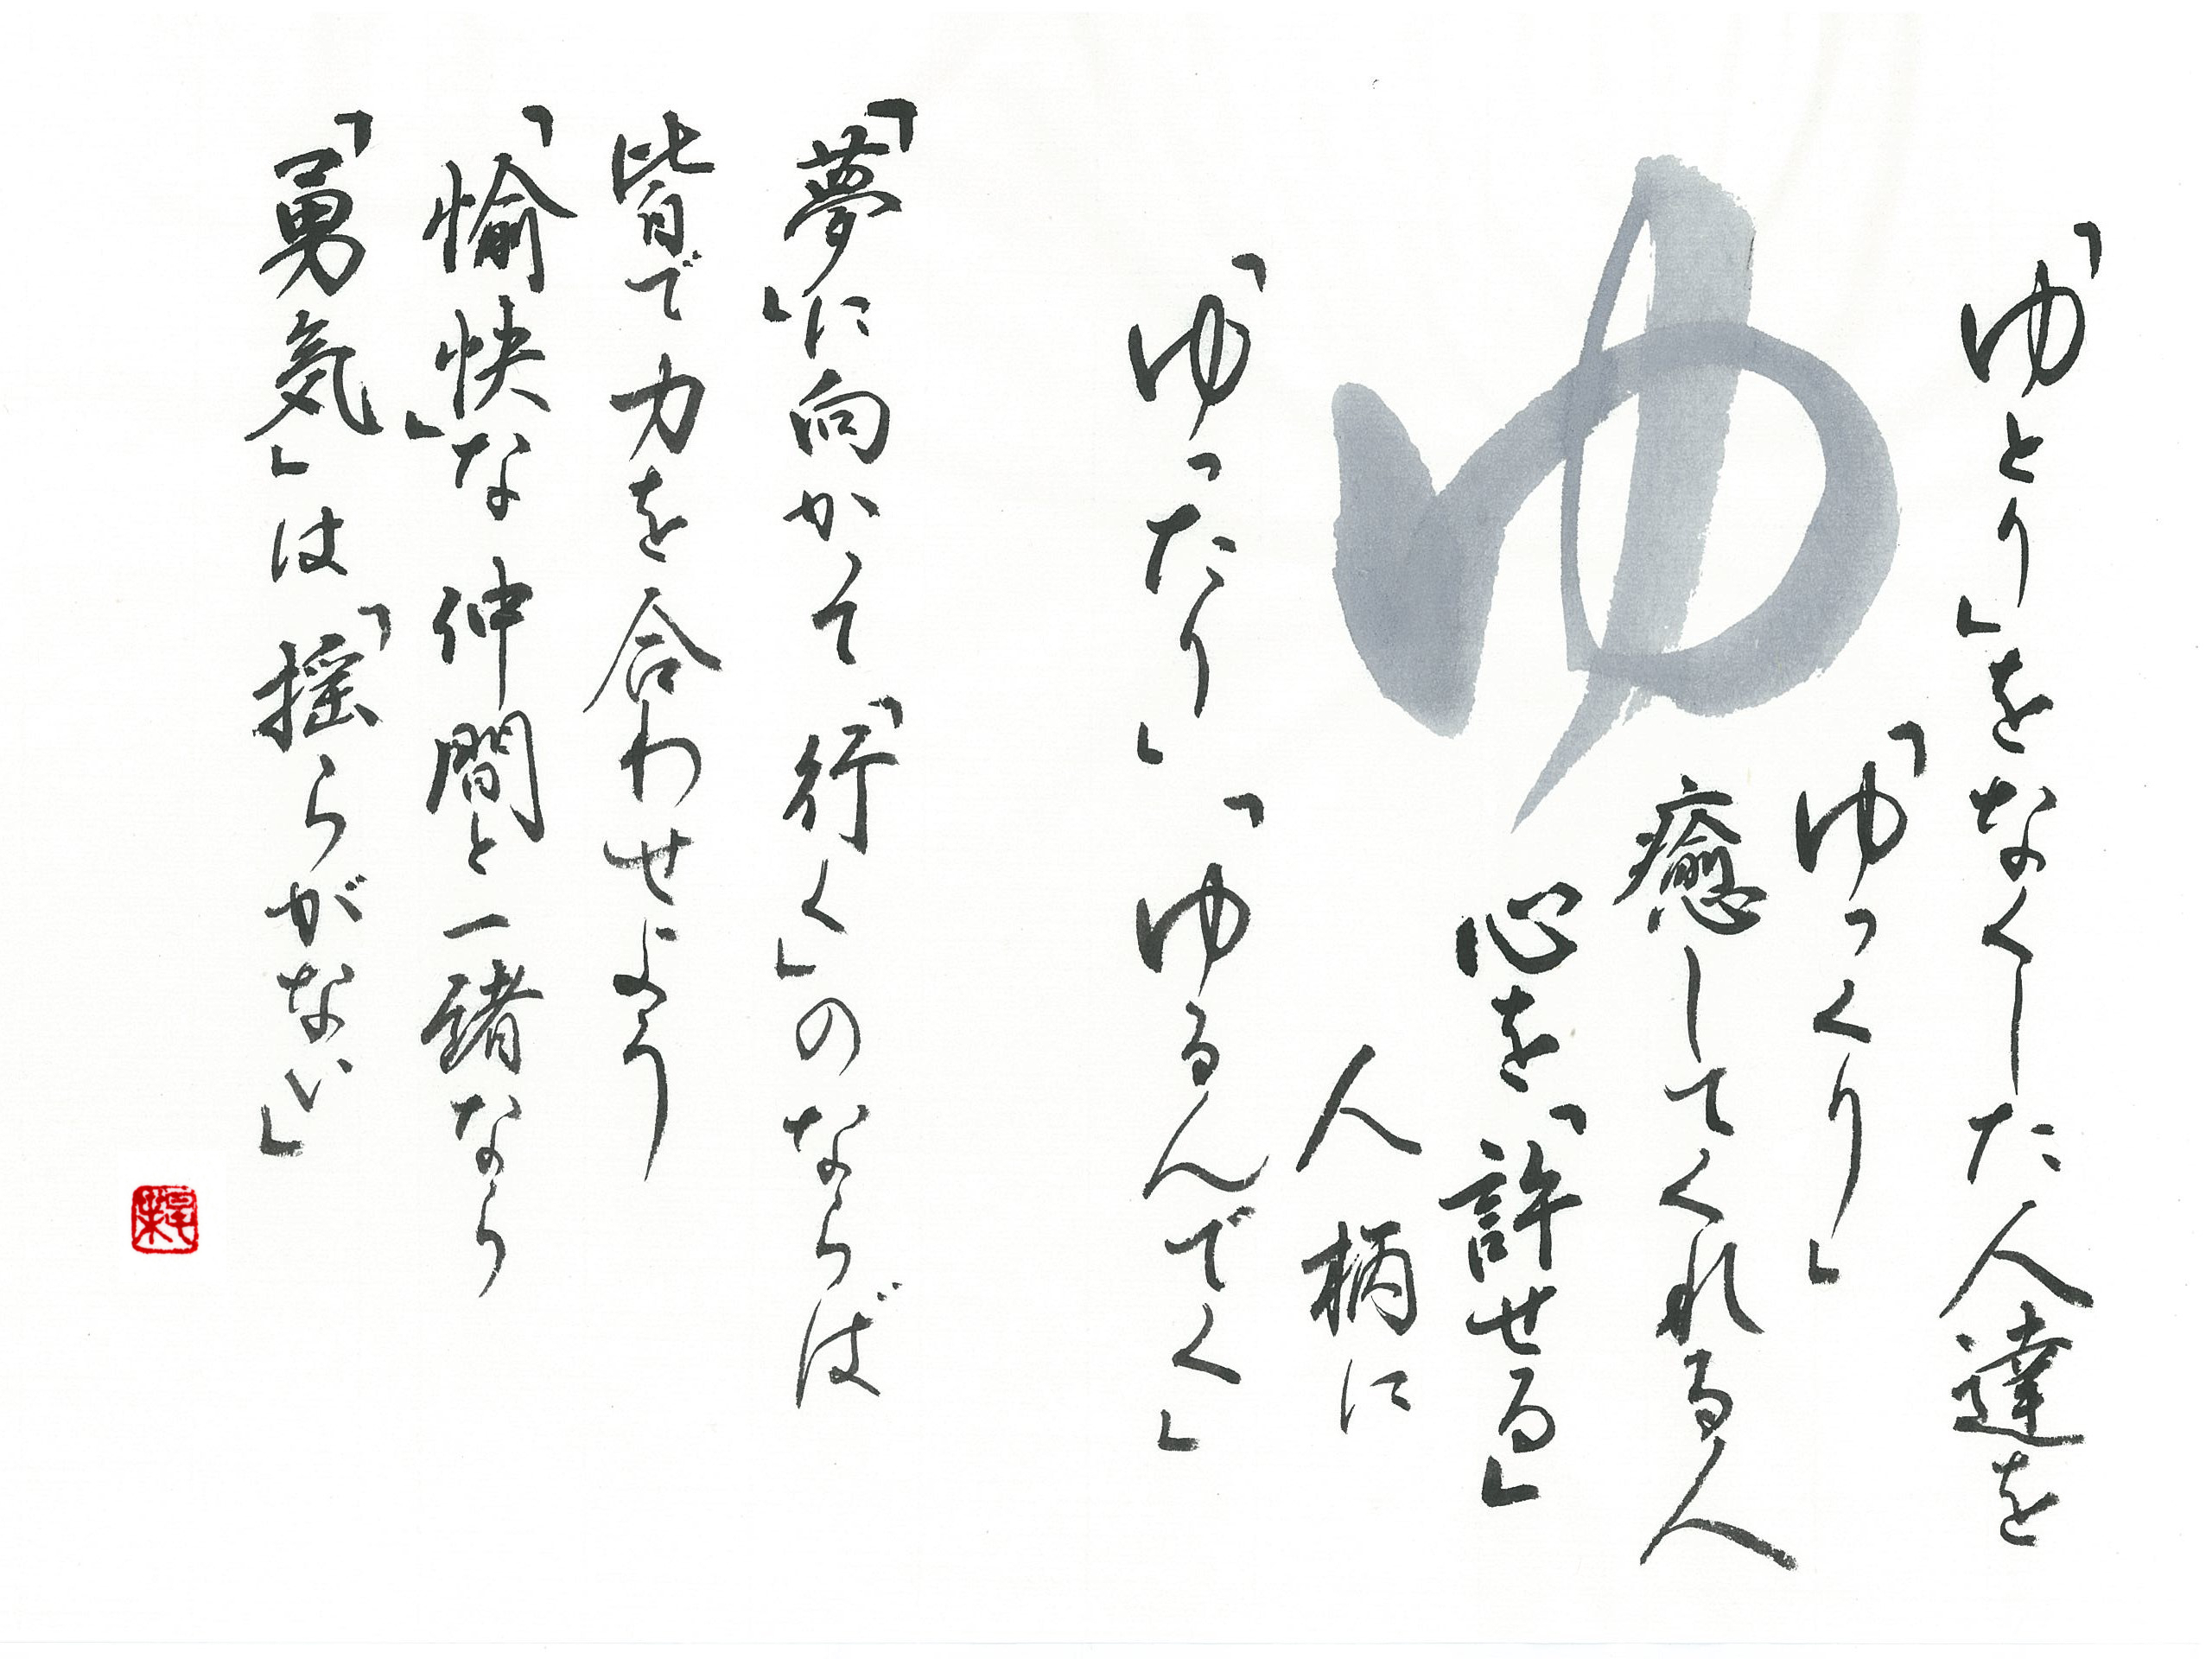 ゆ
「ゆとり」をなくした人達を
「ゆっくり」
癒してくれる人
心を「許せる」
人柄に
「ゆったり」「ゆるんでく」
「夢」に向かって「行く」のならば
皆で力を合わせよう
「愉快」な仲間と一緒なら
「勇気」は「揺らがない」